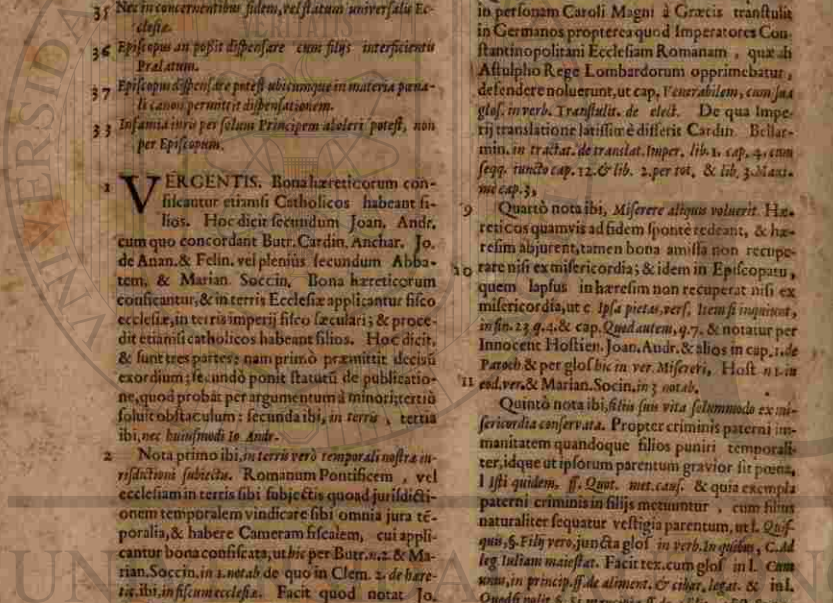 35 Nec in concernentibus fidem, vel statum universalis Ec-
clesiæ.
36 Episcopus an possit dispensare cum filijs interficientis
Prælatum.
37 Episcopus dispensare potest ubicumque in materia pœna-
li canon permittit dispensationem.
33 Infamia iuris per solum Principem aboleri potest, non
per Episcopum.
1 VERGENTIS. Bona hæreticorum con-
fiscantur etiamsi Catholicos habeant fi-
lios. Hoc dicit secundum Joan. Andr.
cum quo concordant Butr. Cardin. Anchar. Jo.
de Anan. & Felin. vel pleniùs secundum Abba-
tem, & Marian. Soccin. Bona hæreticorum
confiscantur, & in terris Ecclesiæ applicantur fisco
ecclesiæ, in terris imperij fisco sæculari; & proce-
dit etiamsi catholicos habeant filios. Hoc dicit,
& sunt tres partes: nam primò præmittit decisū
exordium; secundò ponit statutū de publicatio-
ne, quod probat per argumentum à minori; tertiò
soluit obstaculum: secunda ibi, in terris, tertia
ibi, nec huiusmodi Io Andr.
2 Nota primo ibi, in terris verò temporali nostræ iu-
risdictioni subiectis. Romanum Pontificem, vel
ecclesiam in terris sibi subjectis quoad jurisdicti-
onem temporalem vindicare sibi omnia jura tē-
poralia, & habere Cameram fiscalem, cui appli-
cantur bona confiscata, ut hic per Butr. n. 2. & Ma-
rian. Soccin. in 1. notab. de quo in Clem. 2. de hære-
tic. ibi, in fiscum ecclesiæ. Facit quod notat Jo.
in personam Caroli Magni à Græcis transtulit
in Germanos propterea quod Imperatores Con-
stantinopolitani Ecclesiam Romanam, quæ ab
Astulpho Rege Lombardorum opprimebatur,
defendere noluerunt, ut cap. Venerabilem, cum sua
glos. in verb. Transtulit. de elect. De qua Impe-
rij translatione latissimè disserit Cardin. Bellar-
min. in tractat. de translat. Imper. lib. 1. cap. 4. cum
seqq. iuncto cap. 12. & lib. 2. per tot. & lib. 3. Maxi-
mè cap. 3,
9 Quartò nota ibi, Miserere aliquis voluerit. Hæ-
reticos quamvis ad fidem spontè redeant, & hæ-
resim abjurent, tamen bona amissa non recupe-
10 rare nisi ex misericordia; & idem in Episcopatu,
quem lapsus in hæresim non recuperat nisi ex
misericordia, ut c. Ipsa pietas, vers. Item si inquiunt,
in fin. 23 q. 4. & cap. Quod autem, q. 7. & notatur per
Innocent Hostien. Joan. Andr. & alios in cap. 1. de
Paroch & per glos hic in ver. Misereri, Host n 1. in
11 eod. ver. & Marian. Socin. in 3 notab.
Quintò nota ibi, filiis suis vita solummodo ex mi-
sericordia conservata. Propter criminis paterni im-
manitatem quandoque filios puniri temporali-
ter, idque ut ipsorum parentum gravior sit pœna,
l Isti quidem. ff. Quot. met. caus. & quia exempla
paterni criminis in filijs metuuntur, cum filius
naturaliter sequatur vestigia parentum, ut l. Quis-
quis, §. Filij vero, juncta glos in verb. In quibus, C. Ad
leg Iuliam maiestat. Facit tex. cum glos in l. Cum
unus, in princip. ff. de aliment. & cibar. legat. & in l.